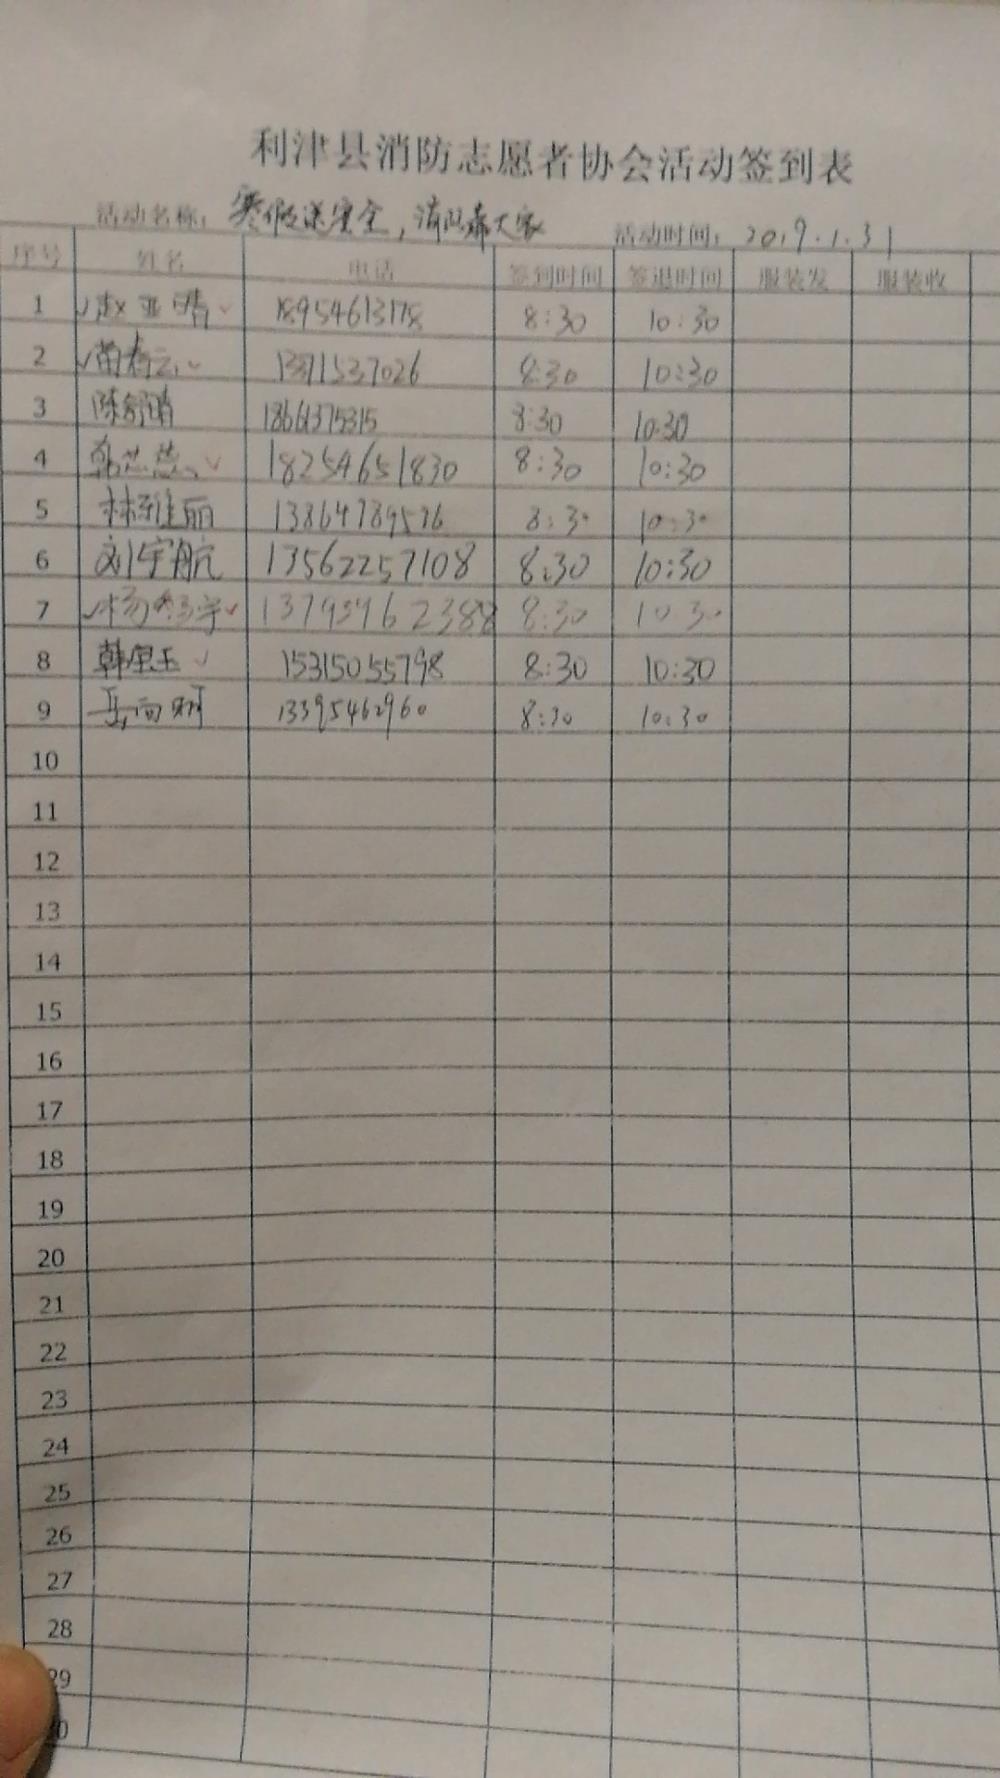 利津县消防志愿者协会活动签到表
活动名称：寒假送安全，消防靠大家 活动时间：2019.1.31
序号 姓名 电话 签到时间 签退时间 服装发 服装收
1 赵亚晴 18954613178 8:30 10:30
2 苗春云 8:30 10:30
3 陈舒 18661375315 8:30 10:30
4 18254651830 8:30 10:30
5 林雅丽 8:30 10:30
6 刘宇航 13562257108 8:30 10:30
7 杨 宇 13793962388 8:30 10:30
8 韩宝玉 15315055798 8:30 10:30
9 13395462960 8:30 10:30
10
11
12
13
14
15
16
17
18
19
20
21
22
23
24
25
26
27
28
29